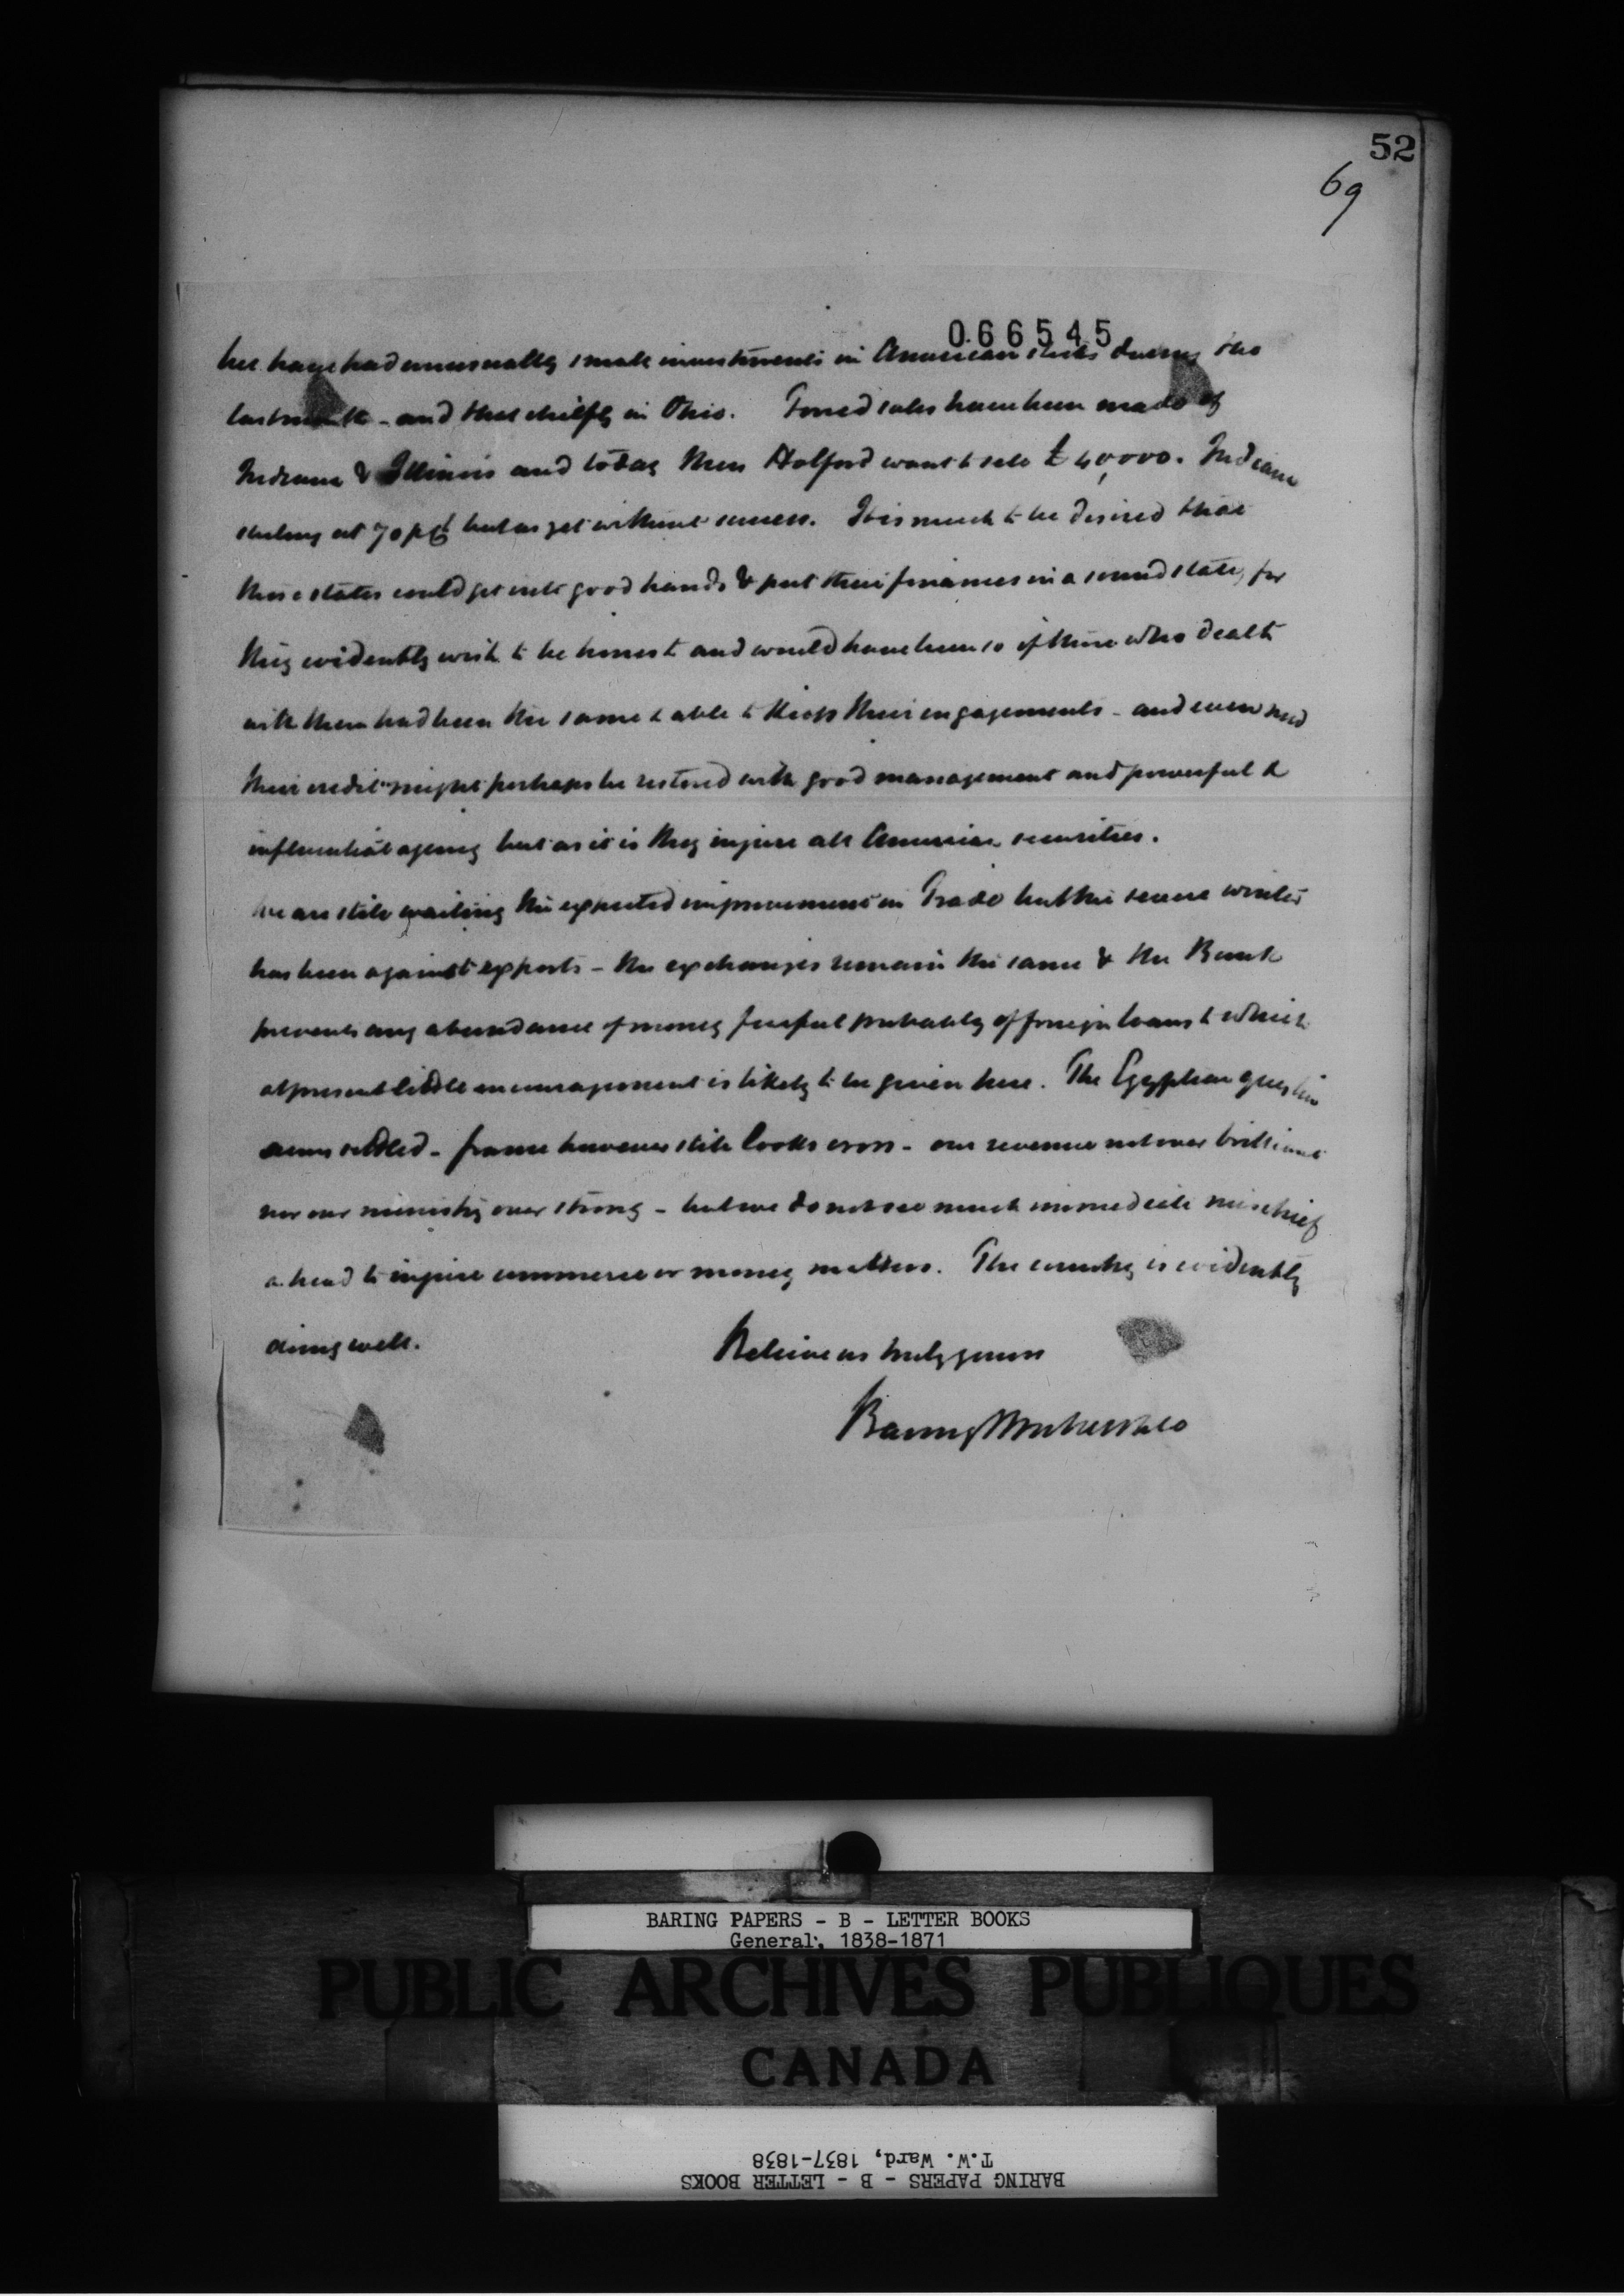 52
69
066545
We have had unusually small investments in American stocks during the
last month - and that chiefly in Ohio. Forced sales have been made of
Indiana & Illinois and today Mess Holford want to sell £ 40,000. Indiana
sterling at 70 pCt but as yet without success. It is much to be desired that
these states could get into good hands & put their finances in a sound state, for
they evidently wish to be honest and would have been so if those who dealt
with them had been the same & able to keep their engagements - and even now
their credit might perhaps be restored with good management and powerful &
influential agency but as it is they injure all American securities.
We are still waiting the expected improvement in Trade but the severe winter
has been against exports - the exchanges remain the same & the Bank
prevents any abundance of money fearful probably of foreign loans to which
at present little encouragement is likely to be given here. The Egyptian question
seems settled - france however still looks cross - our revenue not over brilliant
nor our ministry over strong - but we do not see much immediate mischief
a head to injure commerce or money matters. The country is evidently
doing well.
Believe us truly yours
Baring Brothers & Co
BARING PAPERS - B - LETTER BOOKS
General, 1838-1871
PUBLIC ARCHIVES PUBLIQUES
CANADA
BARING PAPERS - B - LETTER BOOKS
T.W. Ward, 1837-1838